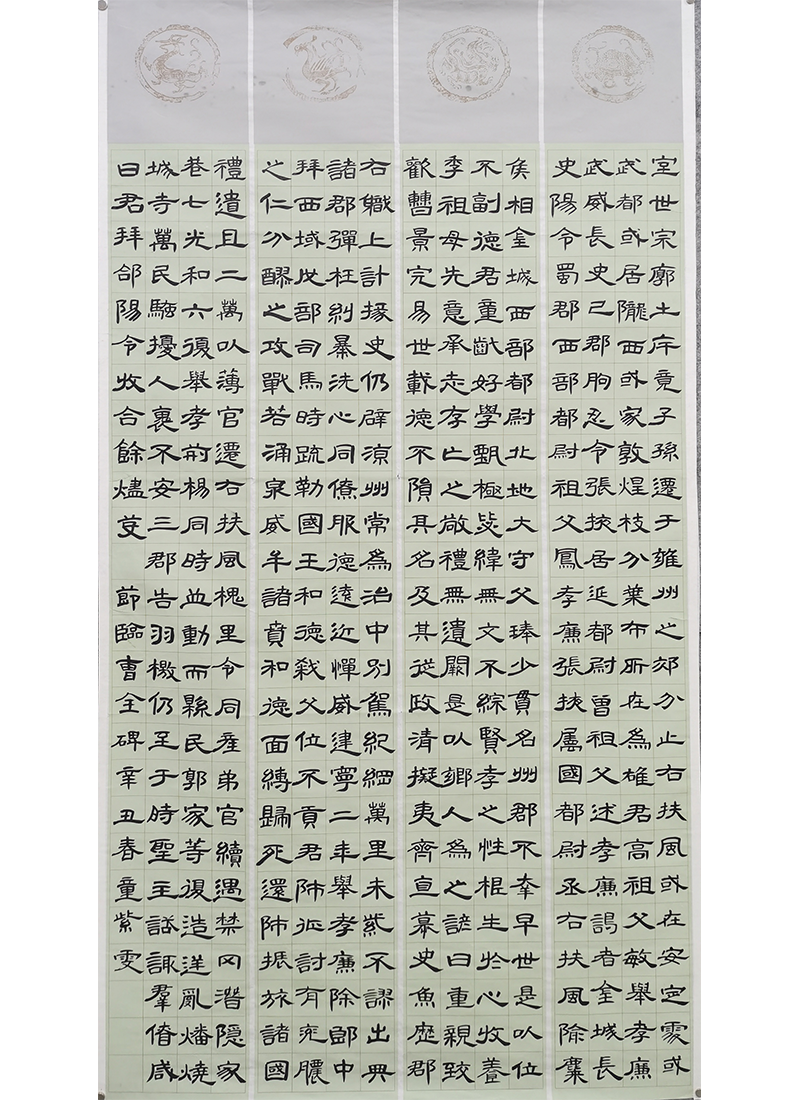 室世宗廓土斥竟子孫遷于雍州之郊分止右扶風或在安定處或
武都或居隴西或家敦煌枝分葉布所在為雄君高祖父敏舉孝廉
武威長史巴郡朐忍令張掖居延都尉曾祖父述孝廉謁者金城長
史陽令蜀郡西部都尉祖父鳳孝廉張掖屬國都尉丞右扶風隃麋
侯相金城西部都尉北地大守父琫少貫名州郡不幸早世是以位
不副德君童齔好學甄極毖緯無文不綜賢孝之性根生於心收養
季祖母先意承志存亡之敬禮無遺闕是以鄉人為之諺曰重親致
歡曹景完易世載德不隕其名及其從政清擬夷齊直慕史魚歷郡
右職上計掾史仍辟涼州常為治中別駕紀綱萬里朱紫不謬出典
諸郡彈枉糾暴洗心同僚服德遠近憚威建寧二年舉孝廉除郎中
拜西域戊部司馬時疏勒國王和德弒父位不貢君師征討有兗膿
之仁分醪之攻戰若涌泉威牟諸賁和德面縛歸死還師振旅諸國
禮遺且二萬以薄官遷右扶風槐里令同產弟官續遇禁冈潛隱家
巷七光和六復舉孝荊楊同時並動而縣民郭家等復造逆亂燔燒
城寺萬民騷擾人裏不安三郡告羽檄仍至于時聖主諮諏羣僚咸
曰君拜郃陽令收合餘燼芟 節臨曹全碑辛丑春童紫雯